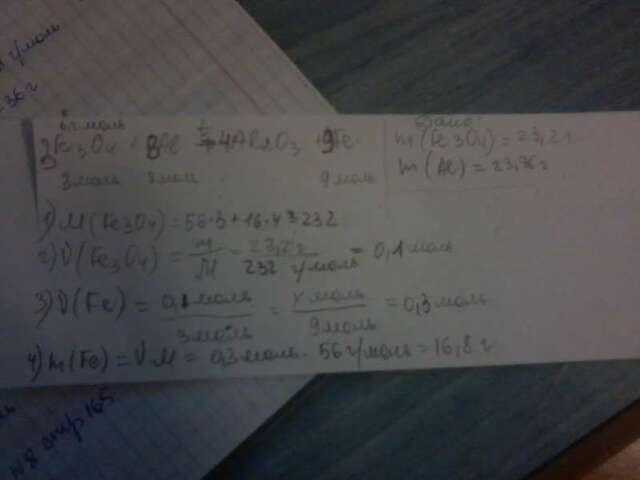 моль
36 г
Дано:
3Fe₃O₄ + 8Al = 4Al₂O₃ + 9Fe
m(Fe₃O₄) = 23,2 г
3 моль 8 моль 9 моль
m(Al) = 23,76 г
1) M(Fe₃O₄) = 56·3+16·4=232
2) ν(Fe₃O₄) = m/M = 23,2 г/232 г/моль = 0,1 моль
3) ν(Fe) = 0,1 моль/3 моль = x моль/9 моль = 0,3 моль
4) m(Fe) = ν M = 0,3 моль · 56 г/моль = 16,8 г
№8 стр 165